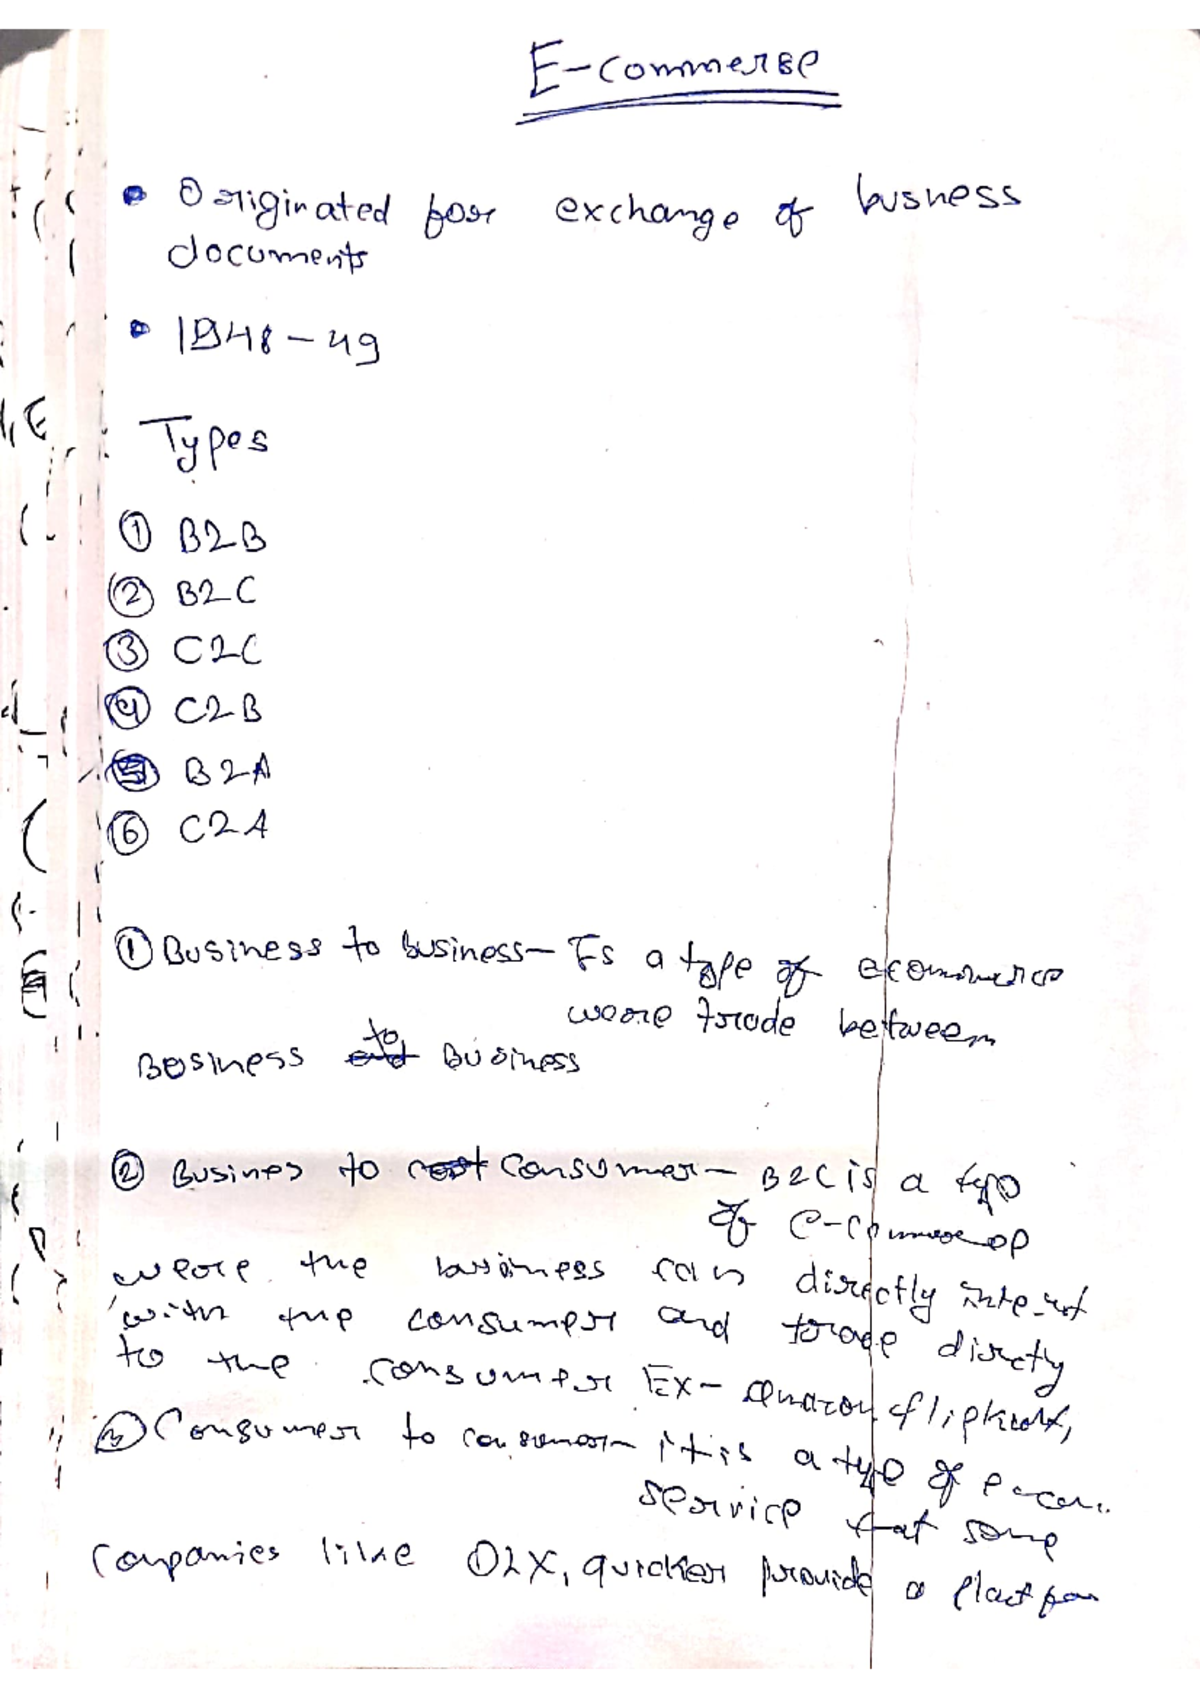 E-commerse
• Originated for exchange of busness
documents
• 1948-49
Types
① B2B
② B2C
③ C2C
④ C2B
⑤ B2A
⑥ C2A
① Business to business- Is a type of ecommerce
weore trade between
Bosiness to Business
② Busines to consumer- B2C is a type
of e-commerce
weore the business can directly
with the consumer and trade directly
to the consumer Ex- amazon, flipkart,
③ Consumer to consumer- it is a type of e-com..
service that some
Companies like OLX, quicker provide a